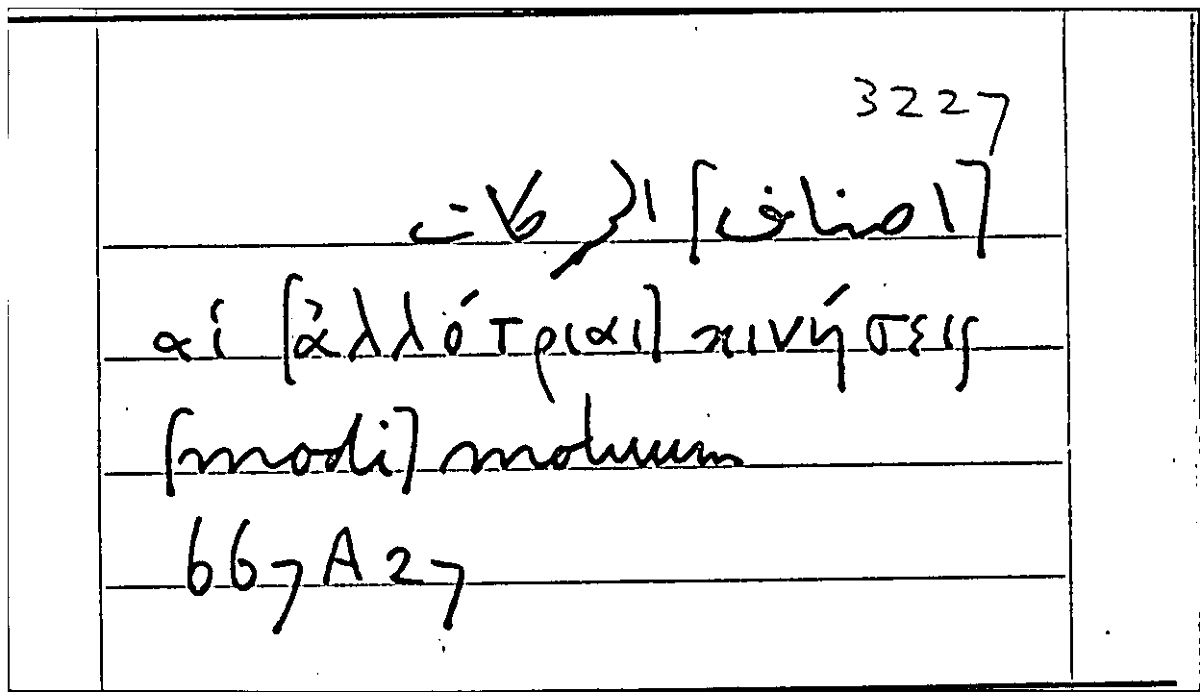 3227
[اصناف] الحركات
αἱ [ἀλλότριαι] κινήσεις
[modi] motuum
667A27